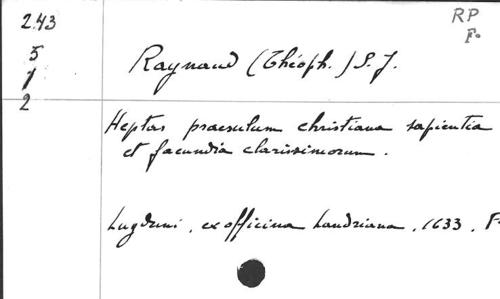 2.43
RP
F.
5
1
2
Raynaud (Théoph.) S. J.
Heptas praesulum christiana sapientia
et facundia clarissimorum.
Lugduni, ex officina Landriana, 1633, F